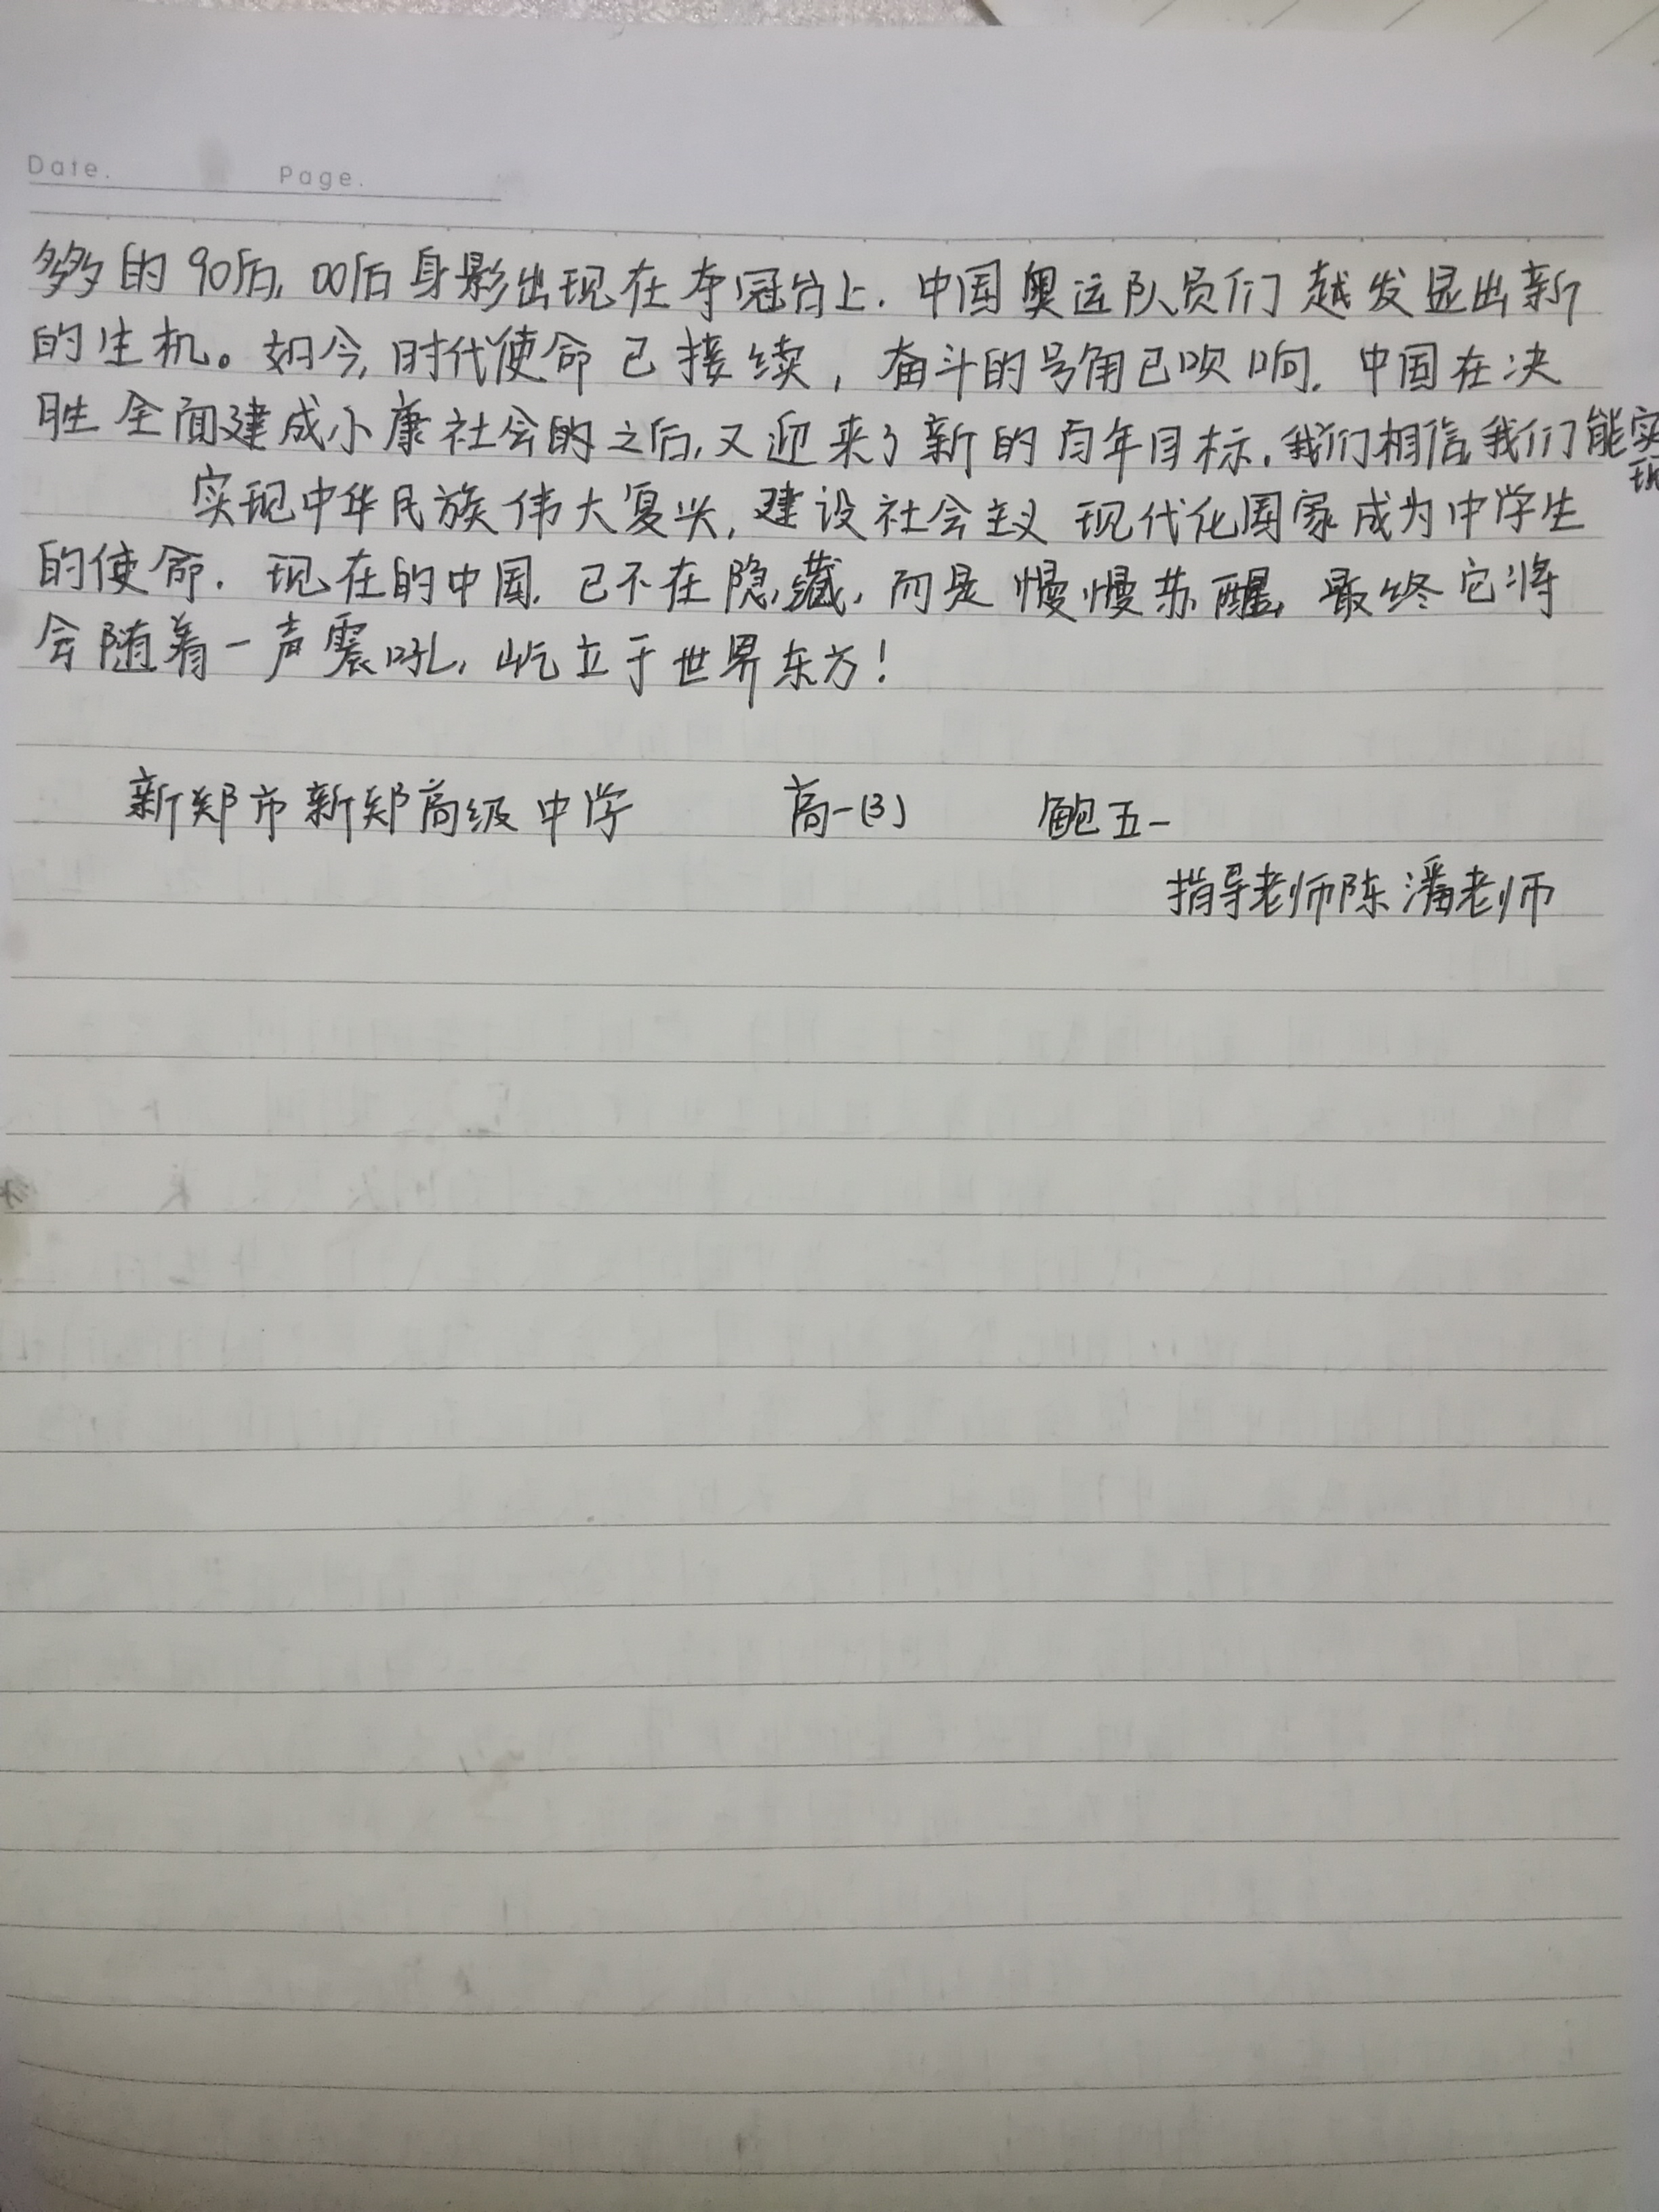 Date. Page.
多多的90后,00后身影出现在夺冠台上.中国奥运队员们越发显出新
的生机。如今,时代使命已接续,奋斗的号角已吹响.中国在决
胜全面建成小康社会的之后,又迎来了新的百年目标.我们相信,我们能实现
实现中华民族伟大复兴,建设社会主义现代化国家成为中学生
的使命.现在的中国.已不在隐藏,而是慢慢苏醒,最终它将
会随着一声震吼,屹立于世界东方!
新郑市新郑高级中学 高一(3) 鲍五一
指导老师陈潘老师